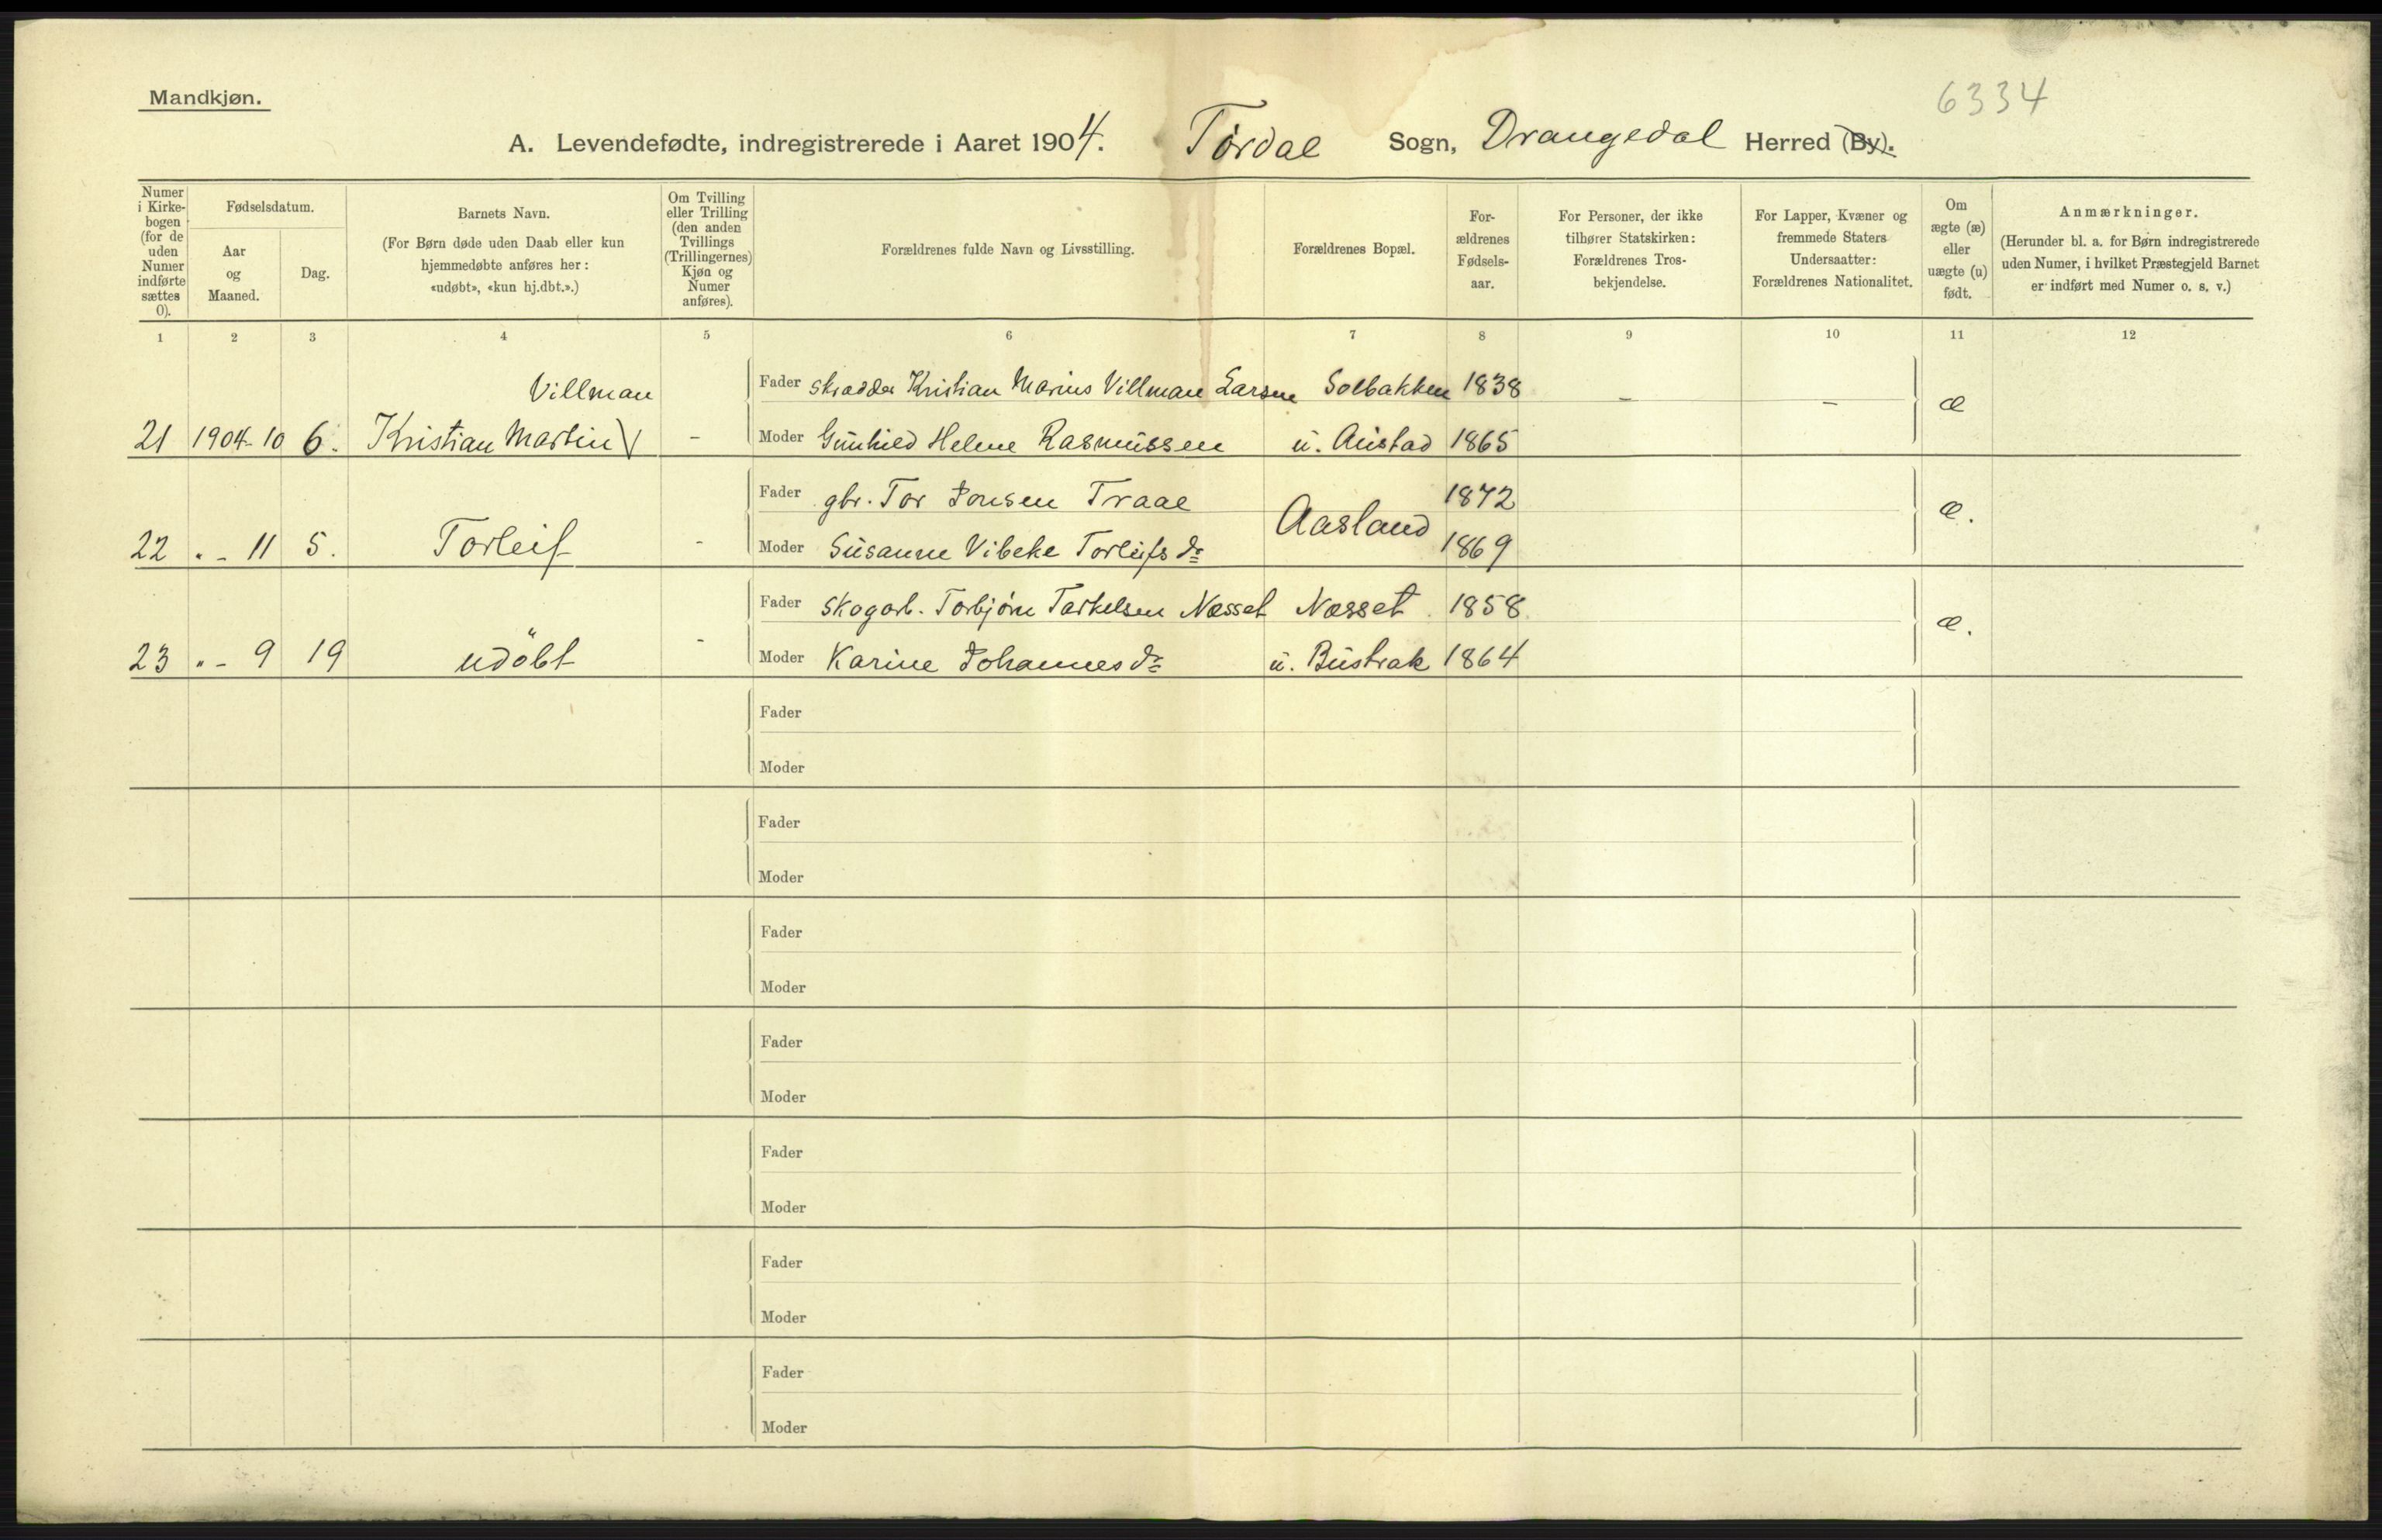 Mandkjøn.
6334
A. Levendefødte, indregistrerede i Aaret 1904. Tørdal Sogn, Drangedal Herred (By).
Numer i Kirkebogen (for de uden Numer indførte sættes 0).
Fødselsdatum.
Aar og Maaned.
Dag.
Barnets Navn.
(For Børn døde uden Daab eller kun hjemmedøbte anføres her: «udøbt», «kun hj.dbt.».)
Om Tvilling eller Trilling (den anden Tvillings (Trillingernes) Kjøn og Numer anføres).
Forældrenes fulde Navn og Livsstilling.
Forældrenes Bopæl.
For-ældrenes Fødsels-aar.
For Personer, der ikke tilhører Statskirken: Forældrenes Tros-bekjendelse.
For Lapper, Kvæner og fremmede Staters Undersaatter: Forældrenes Nationalitet.
Om ægte (æ) eller uægte (u) født.
Anmærkninger.
(Herunder bl. a. for Børn indregistrerede uden Numer, i hvilket Præstegjeld Barnet er indført med Numer o. s. v.)
1 2 3 4 5 6 7 8 9 10 11 12
Villman Fader Skrædder Kristian Marius Villman Larsen Solbakken 1838 – – æ
21 1904-10 6. Kristian Martin \/ – Moder Gunhild Helene Rasmussen u. Austad 1865
Fader gbr. Tor Jonsen Traae Aasland 1872 æ.
22 " - 11 5. Torleif - Moder Susanne Vibeke Torleifs dr 1869
Fader Skogarb. Torbjørn Tarkelsen Næsset Næsset 1858 æ.
23 " - 9 19 udøbt - Moder Karine Johannesdr u. Bustrak 1864
Fader
Moder
Fader
Moder
Fader
Moder
Fader
Moder
Fader
Moder
Fader
Moder
Fader
Moder